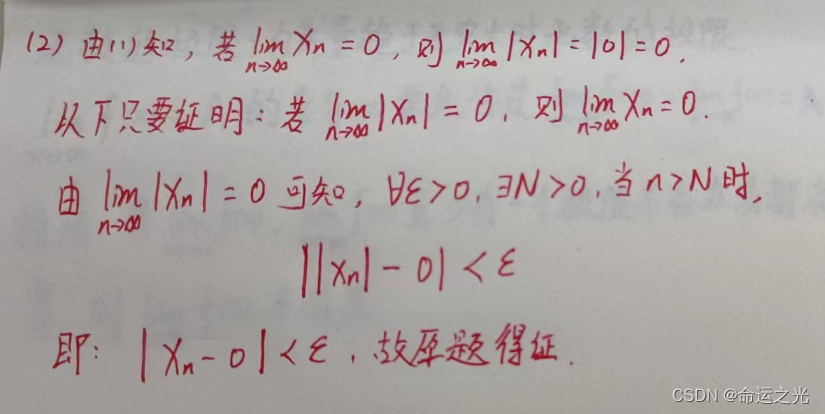 (2) 由(1)知, 若 lim Xn = 0, 则 lim |Xn| = |0| = 0.
n→∞ n→∞
以下只要证明: 若 lim |Xn| = 0, 则 lim Xn = 0.
n→∞ n→∞
由 lim |Xn| = 0 可知, ∀ε > 0, ∃N > 0, 当 n > N 时,
n→∞
||Xn| - 0| < ε
即: |Xn - 0| < ε, 故原题得证.
CSDN @命运之光